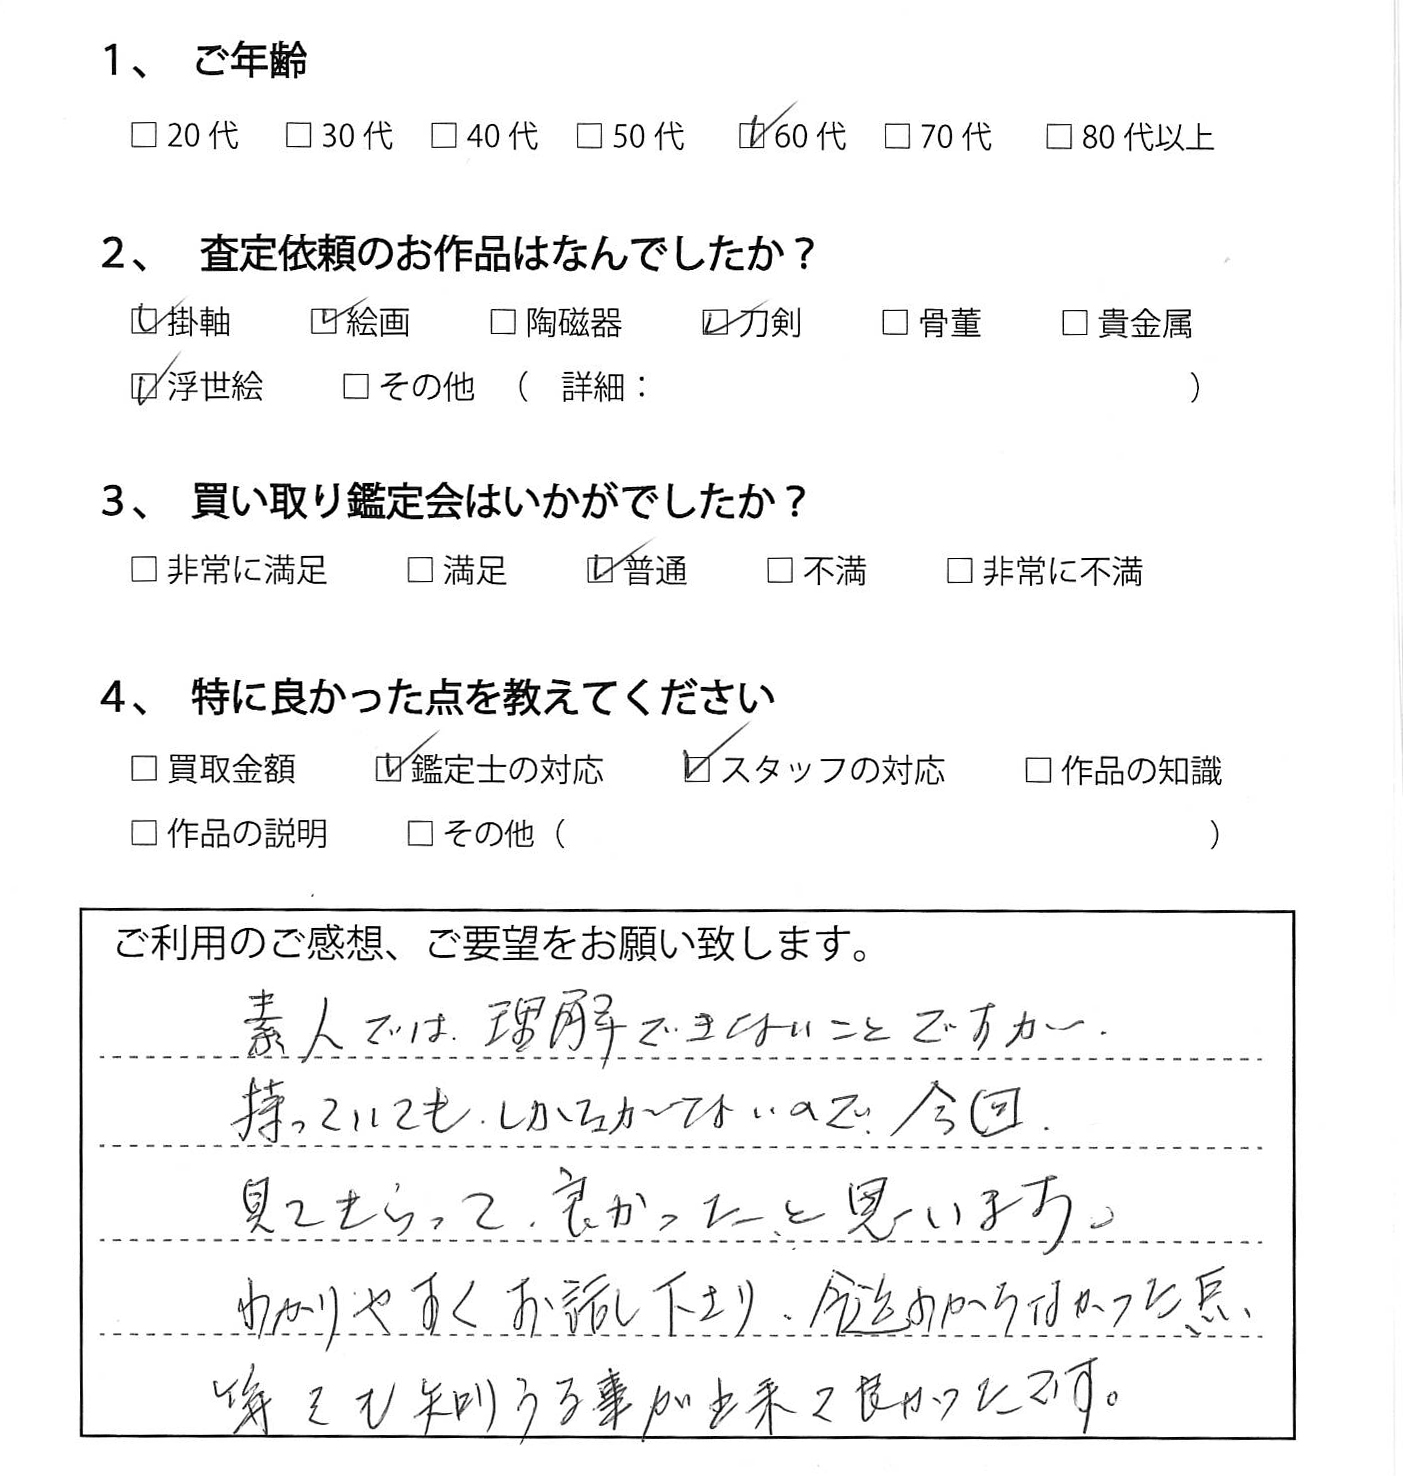 1、 ご年齢
□20代 □30代 □40代 □50代 ☑60代 □70代 □80代以上
2、 査定依頼のお作品はなんでしたか？
☑掛軸 ☑絵画 □陶磁器 ☑刀剣 □骨董 □貴金属
☑浮世絵 □その他 （ 詳細： ）
3、 買い取り鑑定会はいかがでしたか？
□非常に満足 □満足 ☑普通 □不満 □非常に不満
4、 特に良かった点を教えてください
□買取金額 ☑鑑定士の対応 ☑スタッフの対応 □作品の知識
□作品の説明 □その他（ ）
ご利用のご感想、ご要望をお願い致します。
素人では、理解できないことですが、
持っていても、しかたがないので、今回、
見てもらって、良かったと思います。
わかりやすくお話し下さり、今迄わからなかった点、
とても知りうる事が出来て良かったです。